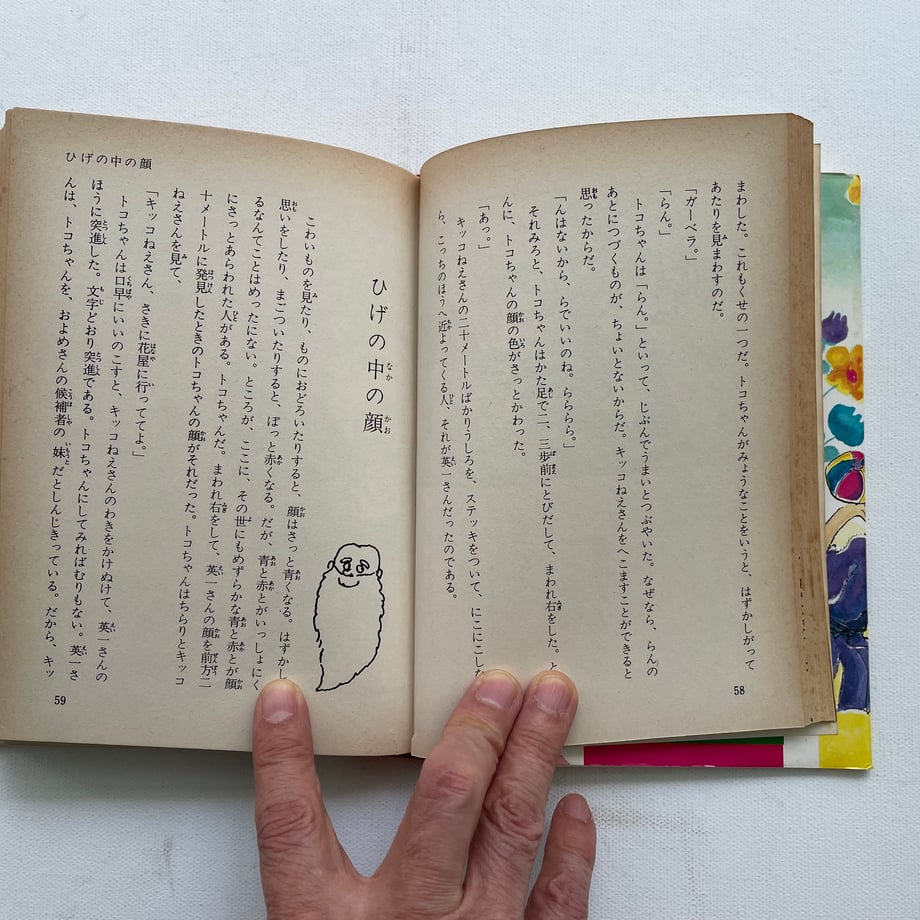 まわした。これもくせの一つだ。トコちゃんがみょうなことをいうと、はずかしがって
あたりを見まわすのだ。
「ガーベラ。」
「らん。」
トコちゃんは「らん。」といって、じぶんでうまいとつぶやいた。なぜなら、らんの
あとにつづくものが、ちょいとないからだ。キッコねえさんをへこますことができると
思ったからだ。
「んはないから、らでいいのね。らららら。」
それみろと、トコちゃんはかた足で二、三歩前にとびだして、まわれ右をした。と
んに、トコちゃんの顔の色がさっとかわった。
「あっ。」
キッコねえさんの二十メートルばかりうしろを、ステッキをついて、にこにこしな
ら、こっちのほうへ近よってくる人、それが英一さんだったのである。
58
ひげの中の顔
ひげの中の顔
こわいものを見たり、ものにおどろいたりすると、顔はさっと青くなる。はずかし
思いをしたり、まごついたりすると、ぽっと赤くなる。だが、青と赤とがいっしょにく
るなんてことはめったにない。ところが、ここに、その世にもめずらかな青と赤とが顔
にさっとあらわれた人がある。トコちゃんだ。まわれ右をして、英一さんの顔を前方二
十メートルに発見したときのトコちゃんの顔がそれだった。トコちゃんはちらりとキッコ
ねえさんを見て、
「キッコねえさん、さきに花屋に行っててよ。」
トコちゃんは口早にいいのこすと、キッコねえさんのわきをかけぬけて、英一さんの
ほうに突進した。文字どおり突進である。トコちゃんにしてみればむりもない。英一さ
んは、トコちゃんを、およめさんの候補者の妹だとしんじきっている。だから、キッ
59